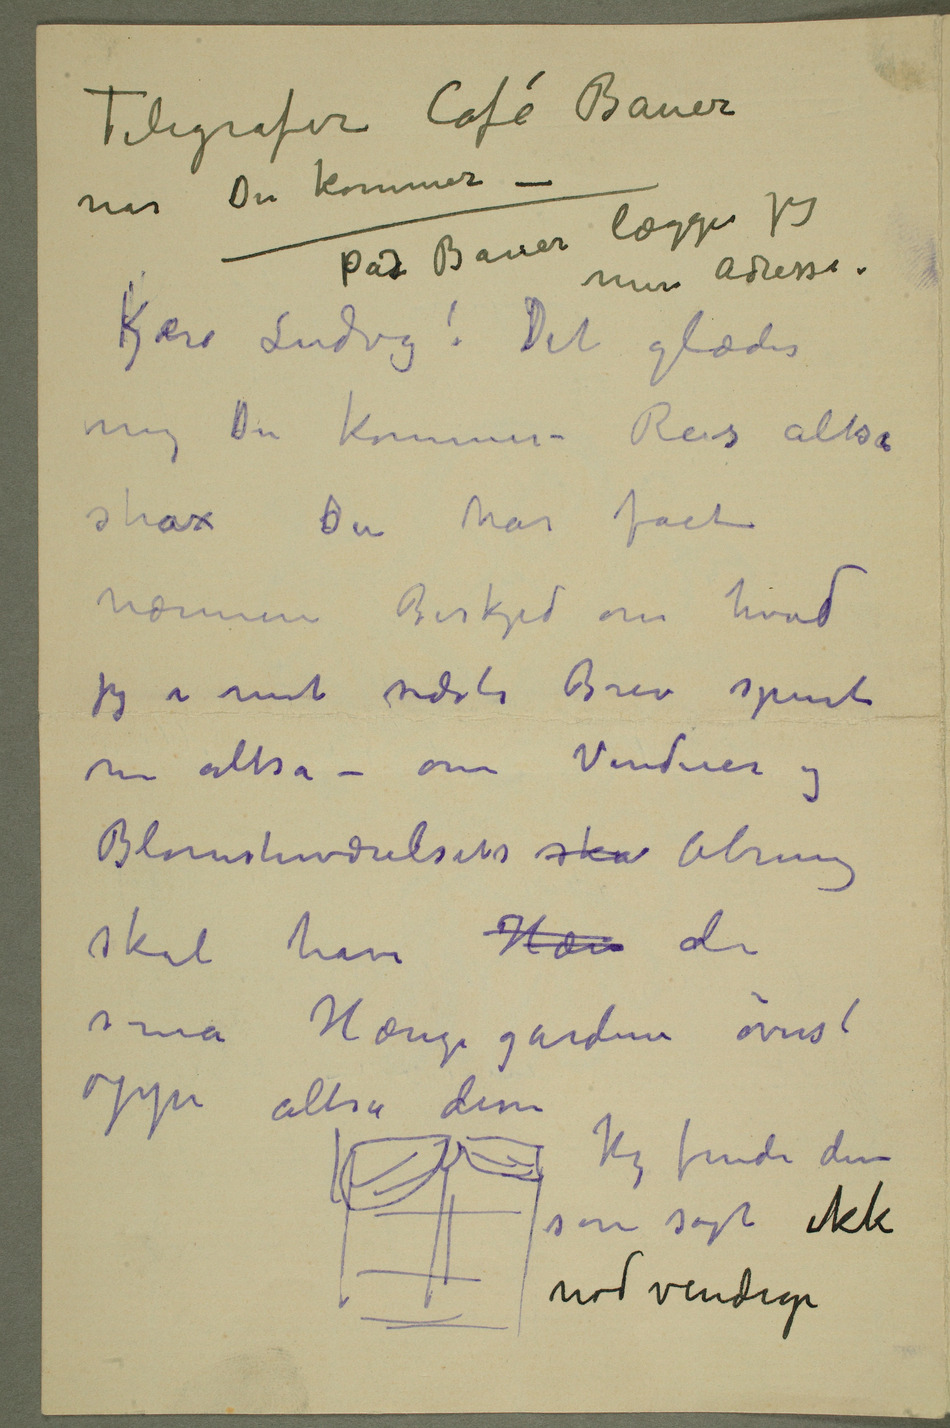 Telegrafer Café Bauer
nar Du kommer –
paa Bauer lægger jeg
min Adresse.
Kjære Ludvig! Det glæder
mig Du kommer – Reis altsa
strax Du har faet
nærmere Beskjed om hvad
jeg i mit sidste Brev spurte
nu altsa – om Vinduer og
Blomsterværelsets ska Abning
skal have Hæn de
sma Hængegardiner överst
oppe altsa dem
Jeg finder dem
som sagt ikke
nodvendige